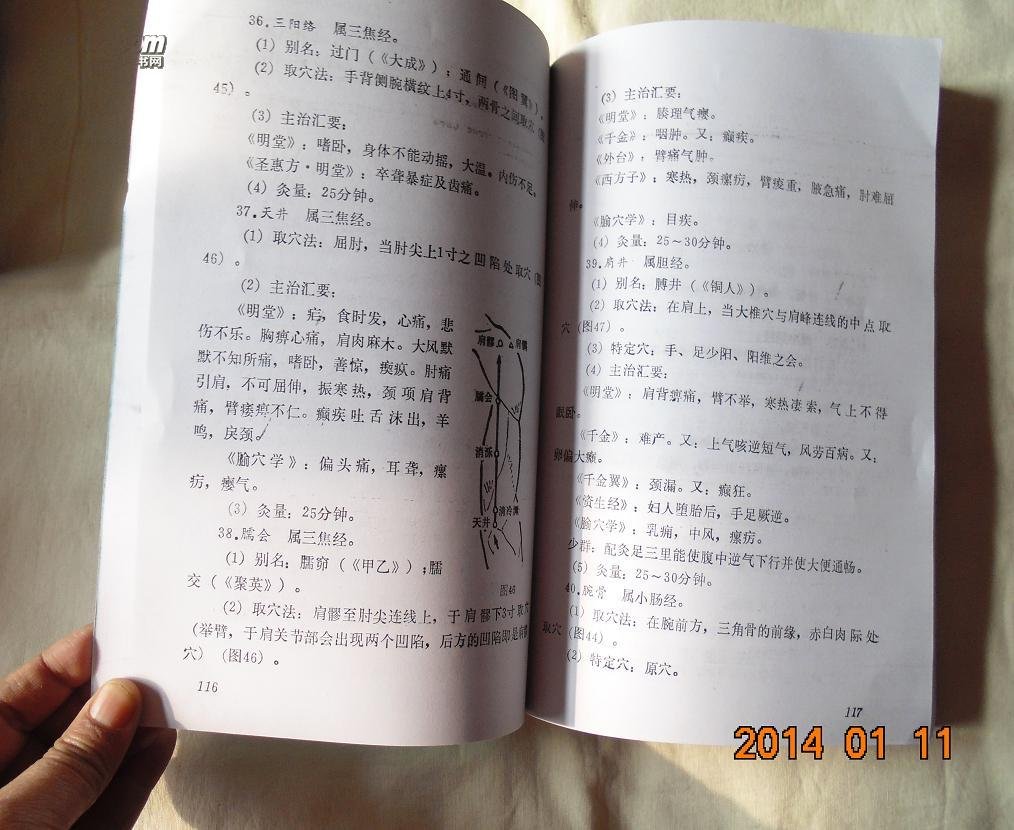 36.三阳络 属三焦经。
(1) 别名：过门（《大成》）；通间（《图翼》）。
(2) 取穴法：手背侧腕横纹上4寸，两骨之间取穴（图
45）。
(3) 主治汇要：
《明堂》：嗜卧，身体不能动摇，大温。内伤不足。
《圣惠方·明堂》：卒聋暴症及齿痛。
(4) 灸量：25分钟。
37.天井 属三焦经。
(1) 取穴法：屈肘，当肘尖上1寸之凹陷处取穴（图
46）。
(2) 主治汇要：
《明堂》：疟，食时发，心痛，悲
伤不乐。胸痹心痛，肩肉麻木。大风默
默不知所痛，嗜卧，善惊，瘈疭。肘痛
引肩，不可屈伸，振寒热，颈项肩背
痛，臂痿痹不仁。癫疾吐舌沫出，羊
鸣，戾颈。
《腧穴学》：偏头痛，耳聋，瘰
疬，瘿气。
(3) 灸量：25分钟。
38.臑会 属三焦经。
(1) 别名：臑窌（《甲乙》）；臑
交（《聚英》）。
(2) 取穴法：肩髎至肘尖连线上，于肩髎下3寸取穴
（举臂，于肩关节部会出现两个凹陷，后方的凹陷即是肩髎
穴）（图46）。
116
肩髎
肩髃
臑会
消泺
清冷渊
天井
图46
(3) 主治汇要：
《明堂》：腠理气瘿。
《千金》：咽肿。又：癫疾。
《外台》：臂痛气肿。
《西方子》：寒热，颈瘰疬，臂痠重，腋急痛，肘难屈
伸。
《腧穴学》：目疾。
(4) 灸量：25～30分钟。
39.肩井 属胆经。
(1) 别名：膊井（《铜人》）。
(2) 取穴法：在肩上，当大椎穴与肩峰连线的中点取
穴（图47）。
(3) 特定穴：手、足少阳、阳维之会。
(4) 主治汇要：
《明堂》：肩背痹痛，臂不举，寒热凄索，气上不得
眠卧。
《千金》：难产。又：上气咳逆短气，风劳百病。又：
卵偏大癞。
《千金翼》：颈漏。又：癫狂。
《资生经》：妇人堕胎后，手足厥逆。
《腧穴学》：乳痈，中风，瘰疬。
少群：配灸足三里能使腹中逆气下行并使大便通畅。
(5) 灸量：25～30分钟。
40.腕骨 属小肠经。
(1) 取穴法：在腕前方，三角骨的前缘，赤白肉际处
取穴（图44）。
(2) 特定穴：原穴。
117
2014 01 11